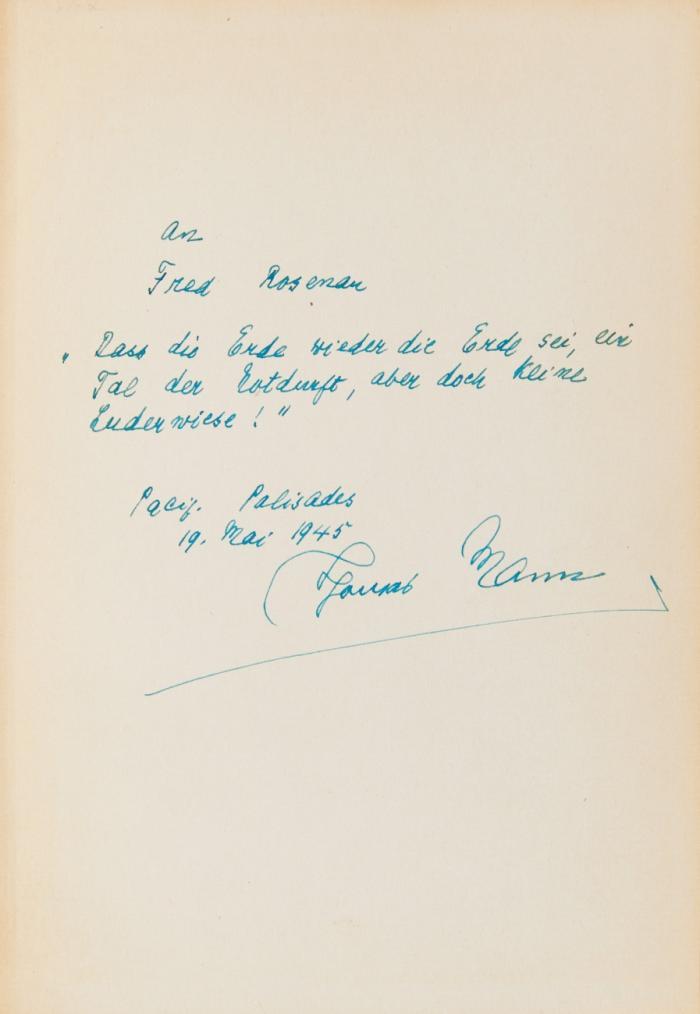 An
Fred Rosenau
„Dass die Erde wieder die Erde sei, ein
Tal der Notdurft, aber doch keine
Luderwiese!"
Pacif. Palisades
19. Mai 1945
Thomas Mann